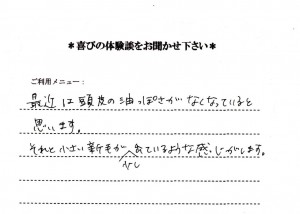 *喜びの体験談をお聞かせ下さい*
ご利用メニュー：
最近は頭皮の油っぽさがなくなっていると
思います。
それと小さい新毛が少し出ているような感じがします。